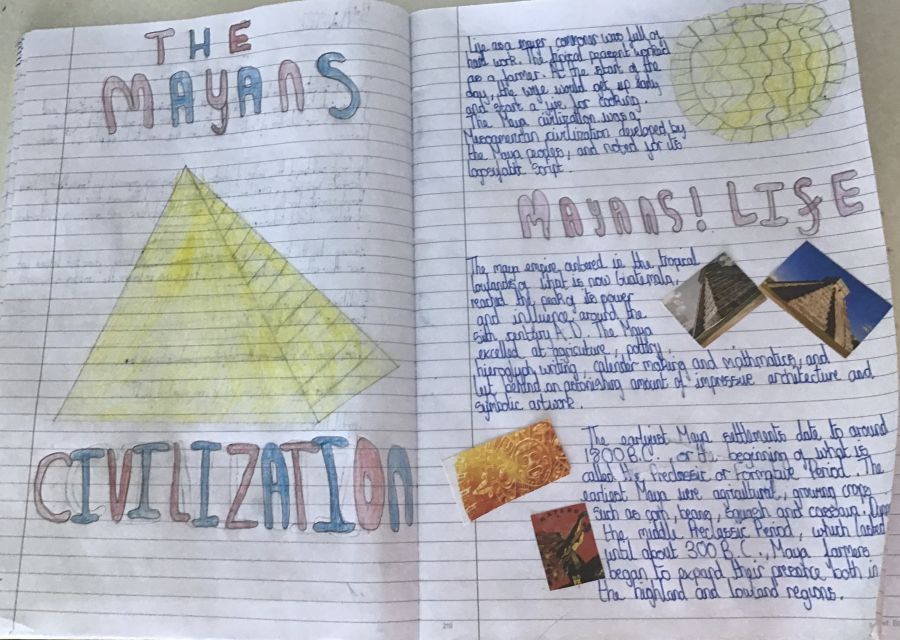 THE
MAYANS
CIVILIZATION
Life as a mayer commoner was full of
hard work. The typical peasent worked
as a farmer. At the start of the
day, the wife would get up early
and start a fire for cooking.
The Maya civilization was a
Mesoamerican civilization developed by
the Maya peoples, and noted for its
logosyllabic script.
MAYANS! LIFE
The maya empire, centered in the tropical
lowlands of what is now Guatemala,
reached the peak of its power
and influence around the
sixth century A.D. The Maya
excelled at agriculture, pottery,
hieroglyph writing, calender making and mathmatics, and
left behind an astonishing amount of impressive architecture and
symbolic artwork.
The earlyiest Maya settlements date to around
1800 B.C., or the beginning of what is
called the Preclassic or Formative Period. The
earliest Maya were agricultural, growing crops
such as corn, beans, squash and cassava.
the middle Preclassic Period, which lasted
until about 300 B.C., Maya farmers
began to expand their presence both in
the highland and lowland regions.